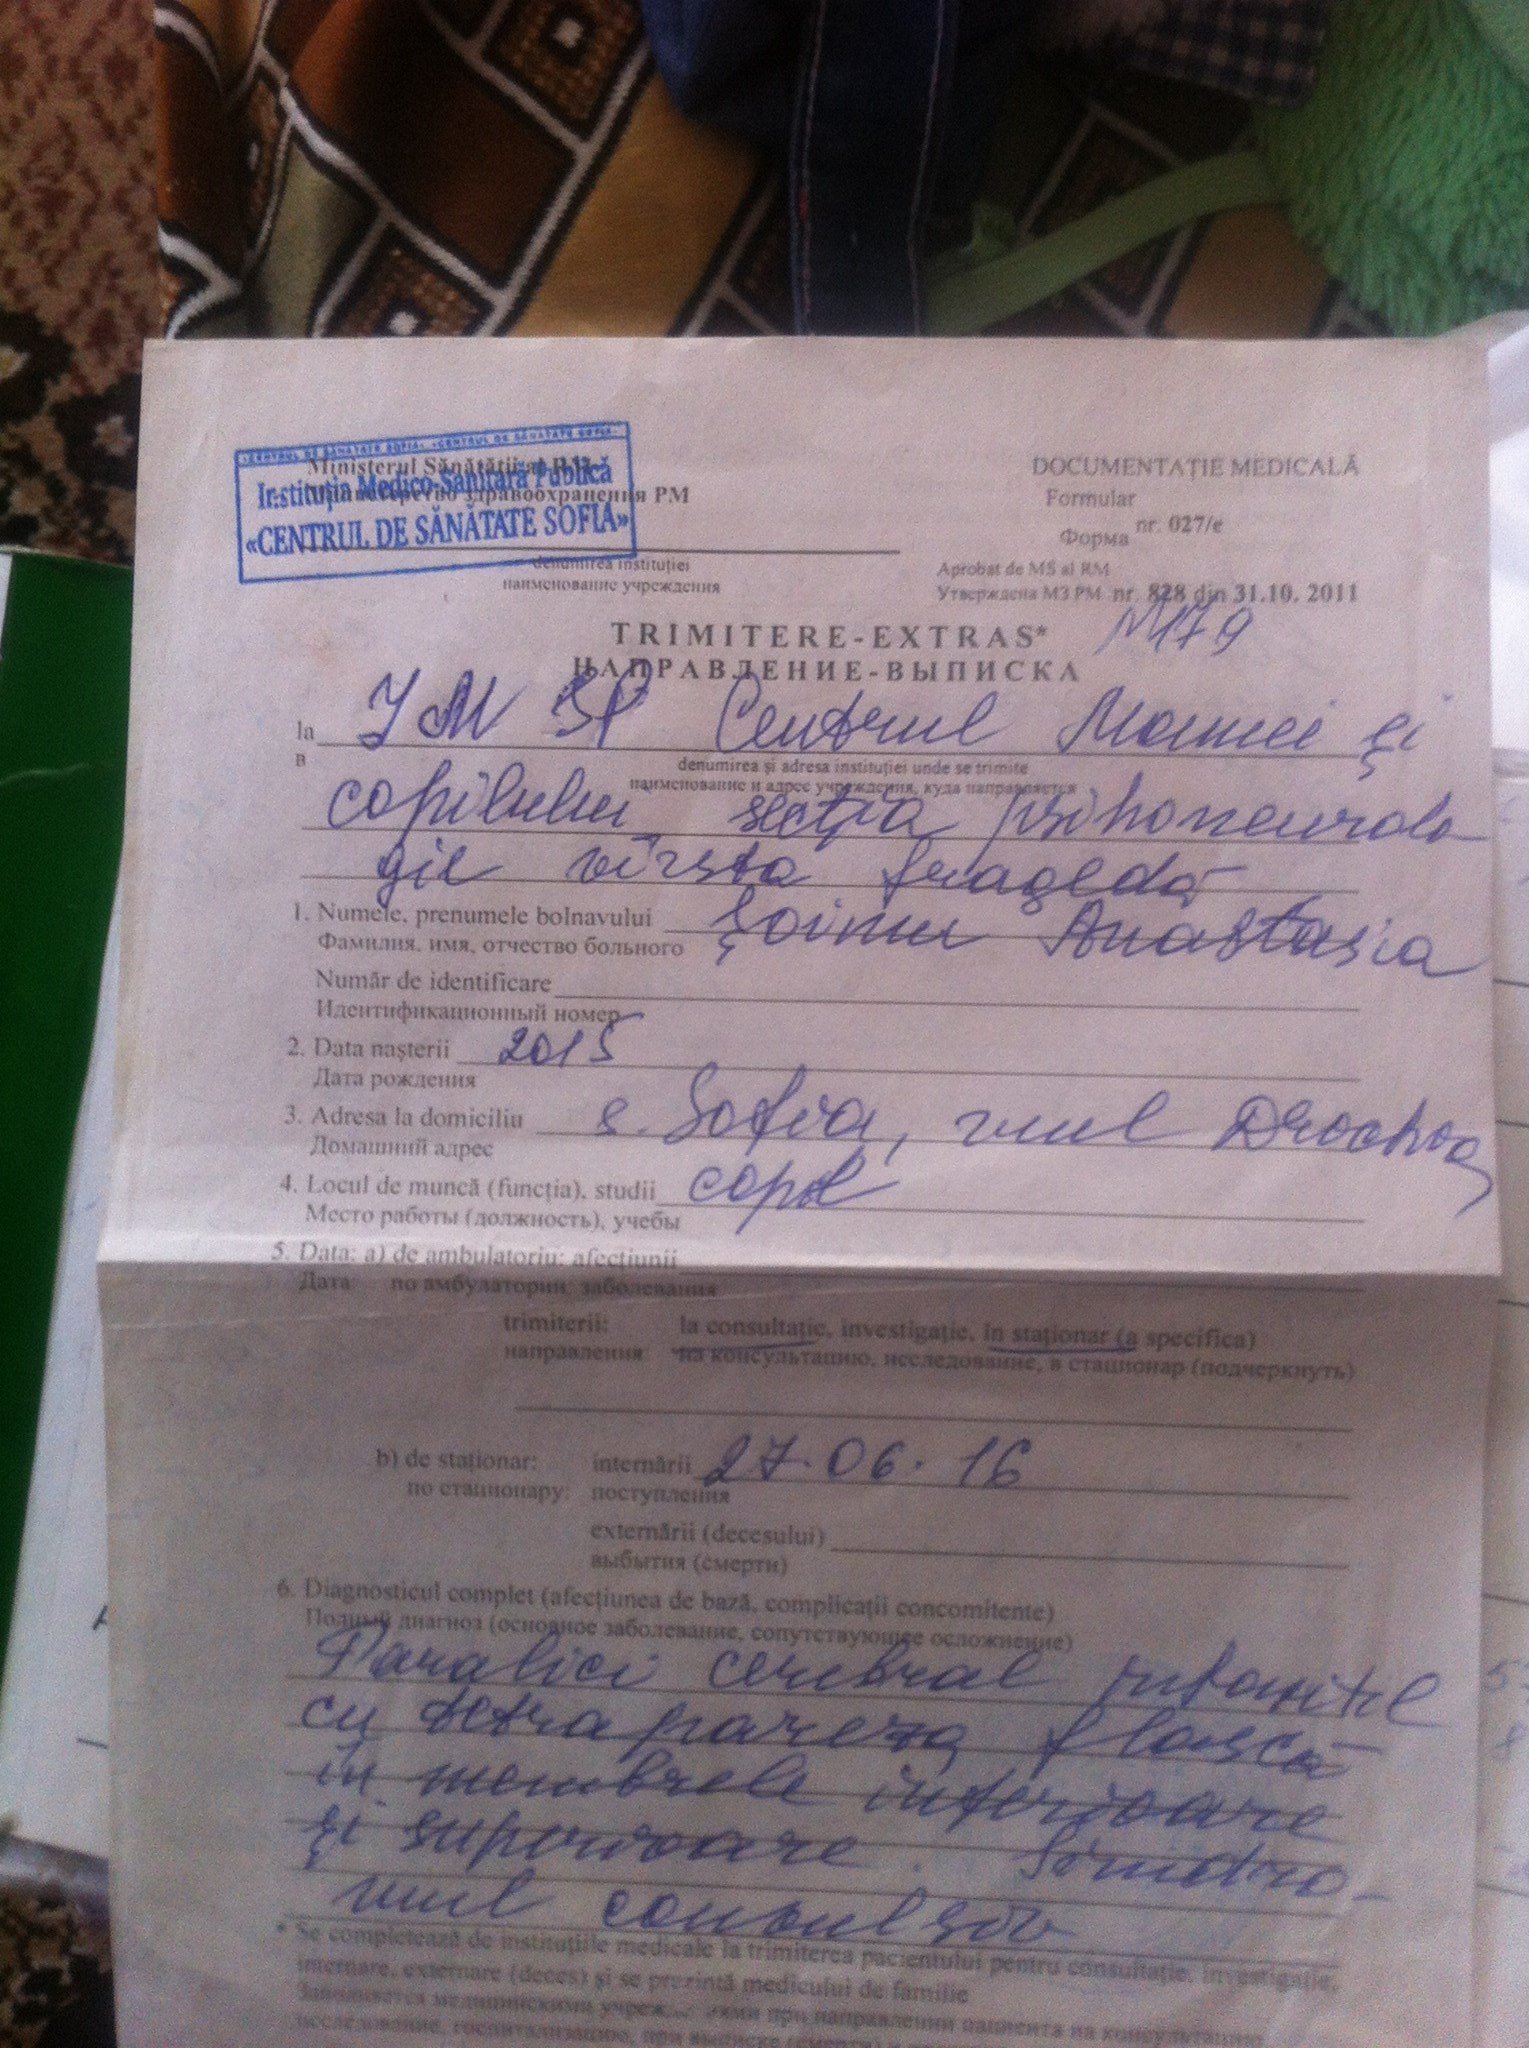 «CENTRUL DE SĂNĂTATE SOFIA» «CENTRUL DE SĂNĂTATE SOFIA»
Ministerul Sănătăţii al RM
Instituţia Medico-Sanitară Publică
здравоохранения РМ
«CENTRUL DE SĂNĂTATE SOFIA»
denumirea instituţiei
наименование учреждения
DOCUMENTAŢIE MEDICALĂ
Formular
Форма nr. 027/e
Aprobat de MS al RM
Утверждена МЗ РМ nr. 828 din 31.10. 2011
TRIMITERE-EXTRAS* N179
НАПРАВЛЕНИЕ-ВЫПИСКА
la IMSP Centrul Mamei și
в denumirea şi adresa instituţiei unde se trimite
наименование и адрес учреждения, куда направляется
copilului secția psihoneurolo-
gie vîrsta fragedă
1. Numele, prenumele bolnavului Șoimu Anastasia
Фамилия, имя, отчество больного
Număr de identificare
Идентификационный номер
2. Data naşterii 2015
Дата рождения
3. Adresa la domiciliu s. Sofia, r-nul Drochia
Домашний адрес
4. Locul de muncă (funcţia), studii copil
Место работы (должность), учебы
5. Data: a) de ambulatoriu: afecţiunii
Дата по амбулатории: заболевания
trimiterii: la consultaţie, investigaţie, în staţionar (a specifica)
направления на консультацию, исследование, в стационар (подчеркнуть)
b) de staţionar: internării 27.06.16
по стационару: поступления
externării (decesului)
выбытия (смерти)
6. Diagnosticul complet (afecţiunea de bază, complicaţii concomitente)
Полный диагноз (основное заболевание, сопутствующее осложнение)
Paralici cerebral infantil
cu tetrapareza flască
în membrele inferioare
și superioare. Sindro-
mul convulsiv
* Se completează de instituţiile medicale la trimiterea pacientului pentru consultaţie, investigaţie,
internare, externare (deces) şi se prezintă medicului de familie
Заполняется медицинскими учреждениями при направлении пациента на консультацию,
исследование, госпитализацию, при выписке (смерти) и